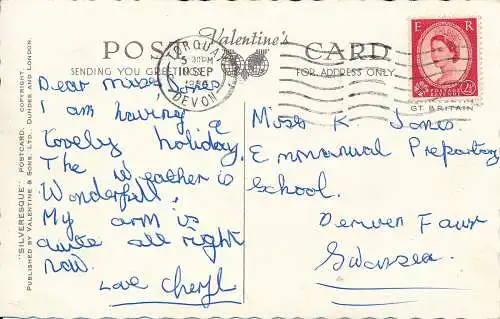 POST CARD
Valentine's
SENDING YOU GREETINGS
FOR ADDRESS ONLY
TORQUAY
30PM
10 SEP
DEVON
E R
POSTAGE REVENUE
2½D
GT. BRITAIN
"SILVERESQUE" POSTCARD. COPYRIGHT.
PUBLISHED BY VALENTINE & SONS. LTD. DUNDEE AND LONDON.
Dear miss Jones
I am having a
lovely holiday.
The Weather is
Wonderful.
My arm is
quite all right
now.
Love Cheryl
Miss K Jones
Emmanual Prepartory
School.
Derwen Fawr
Swansea.